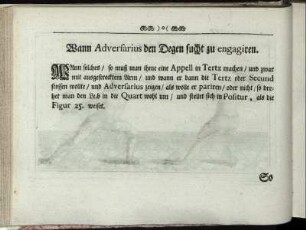 )o(
Wann Adversarius den Degen sucht zu engagiren.
Wann solches / so muß man ihme eine Appell in Tertz machen / und zwar
mit ausgestrecktem Arm / und wann er dann die Tertz oder Secund
stossen wolte / und Adversarius zogen / als wolte er pariren / oder nicht / so dre-
het man den Leib in die Quart wohl um / und stellet sich in Positur, als die
Figur 25. weiset.
So